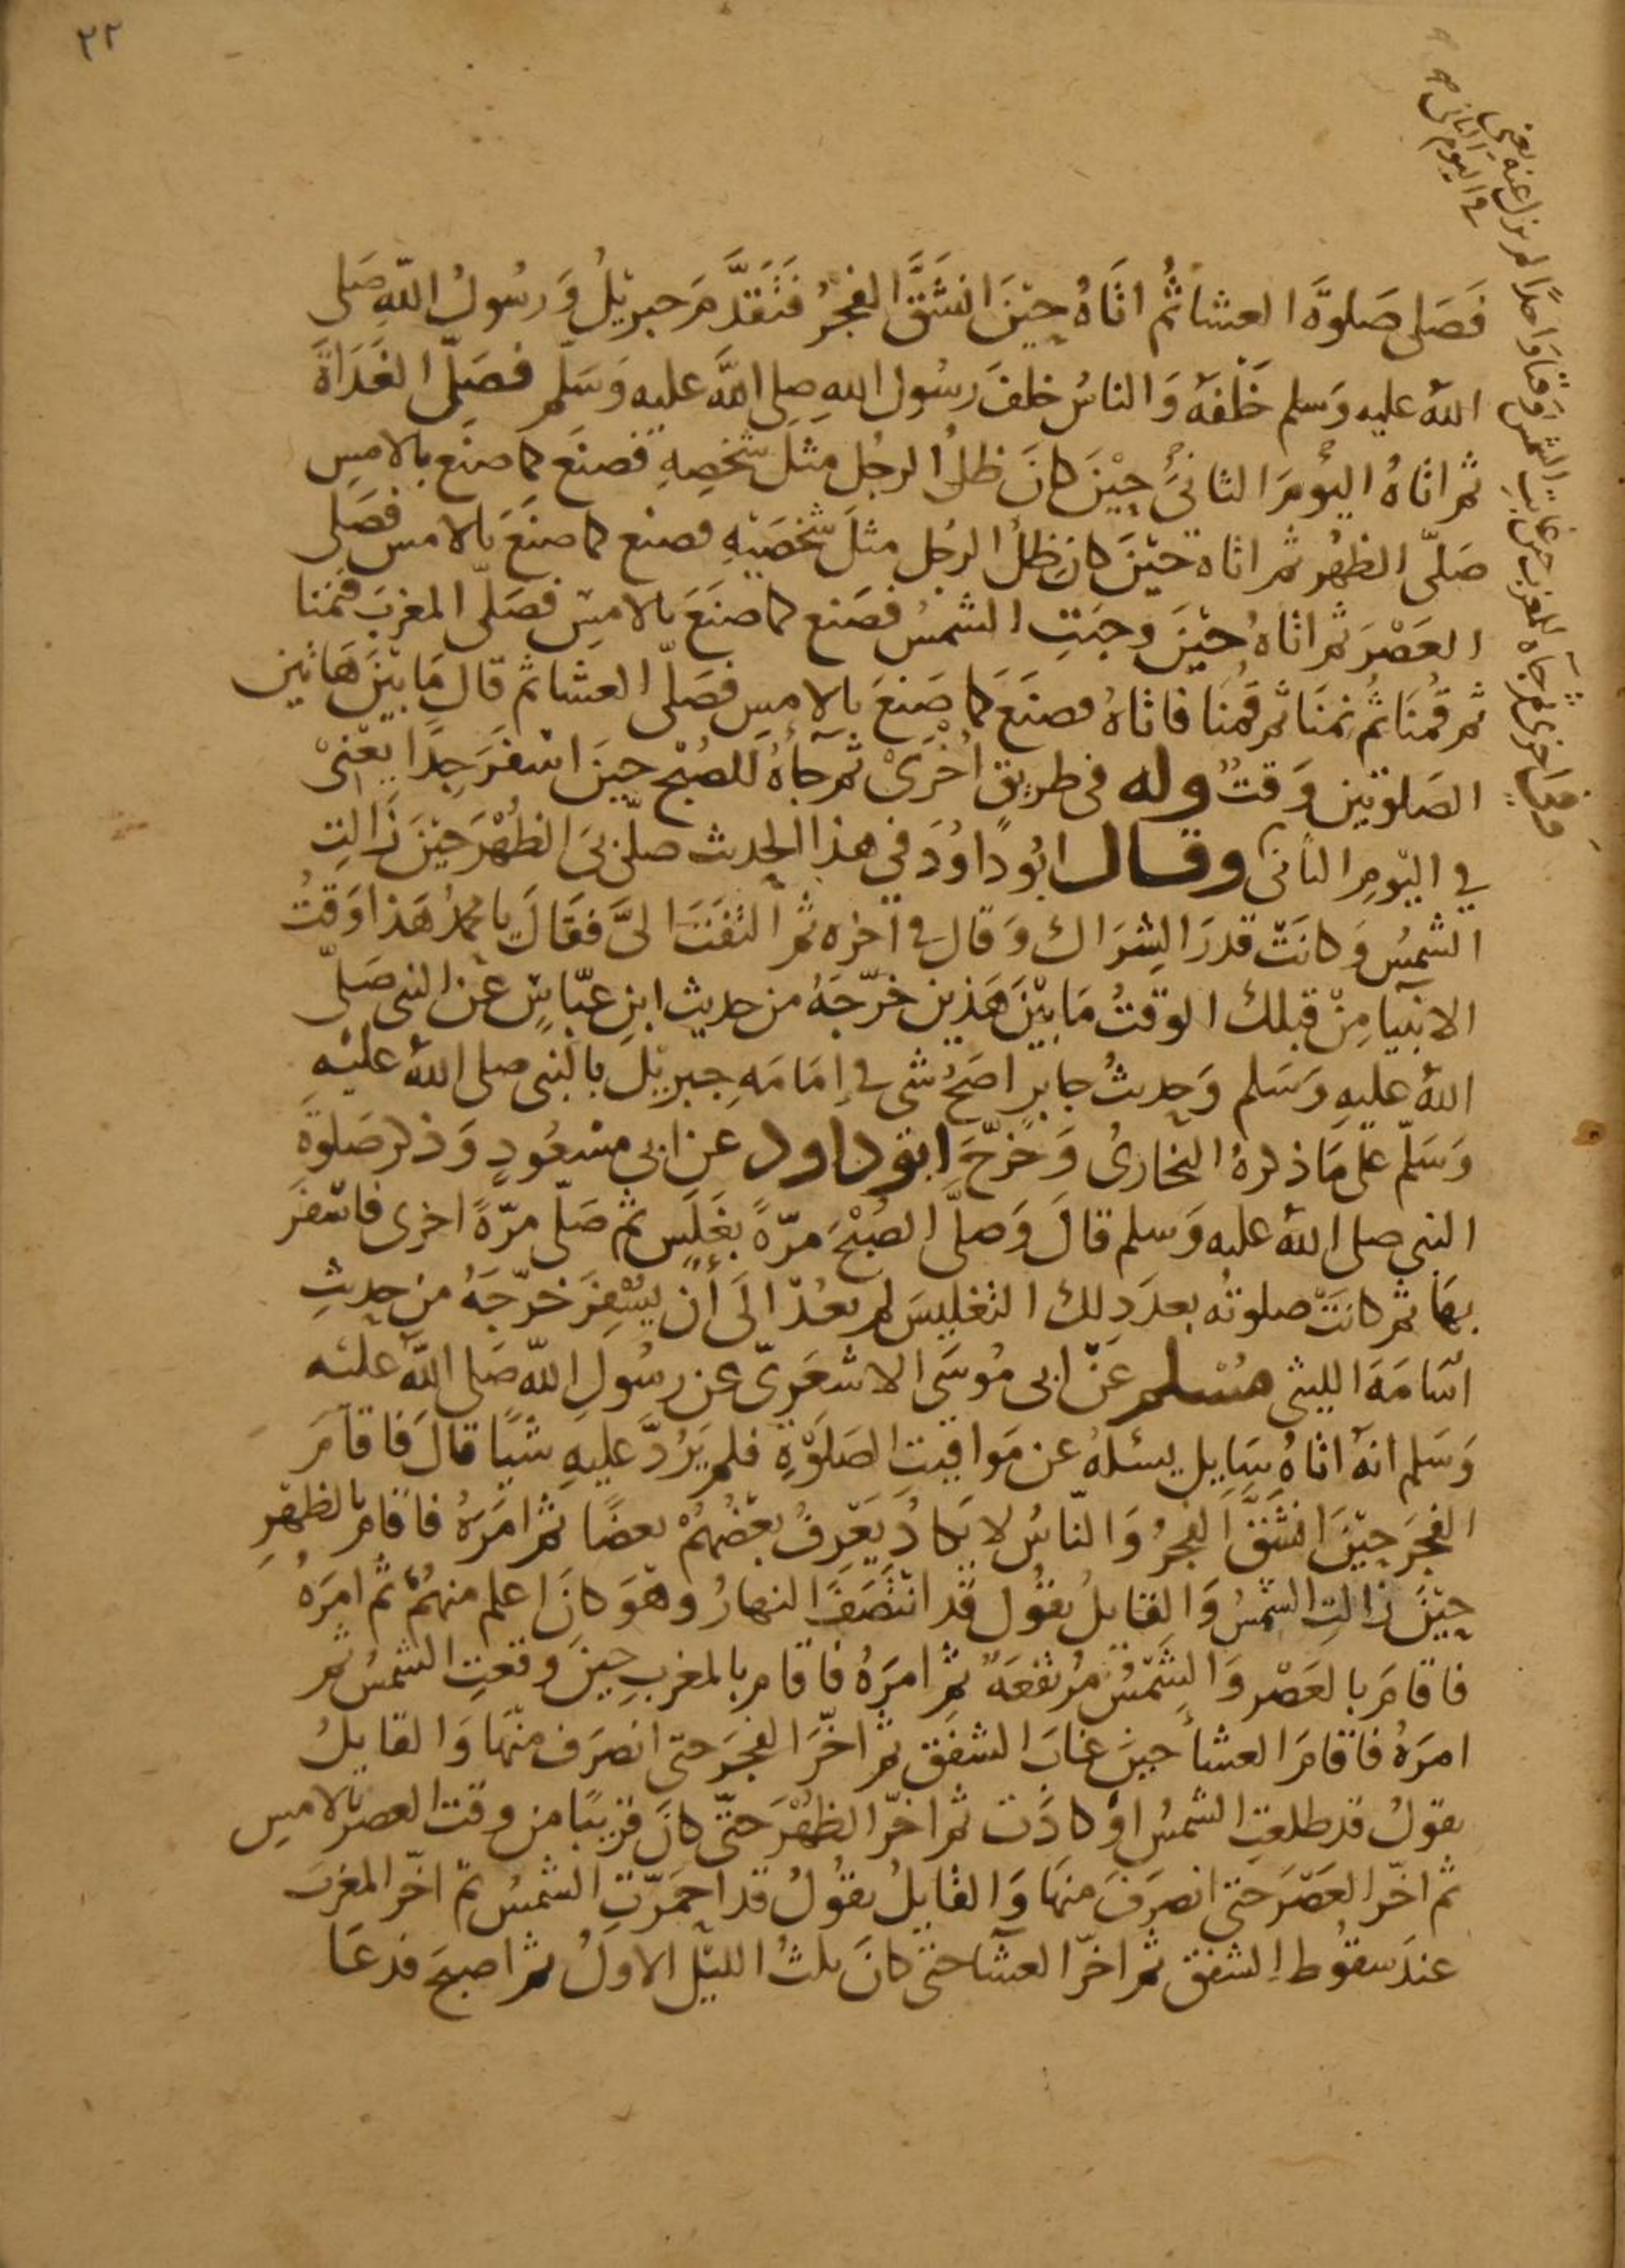 ٢٢
فَصَلى صَلوةَ العشا ثُم اتَاهُ حِيْنَ انشَقَّ الفجرُ فَتَقَدَّمَ جبريْلُ وَرسُولُ اللهِ صَلى
اللهُ عليه وَسلم خَلْفَهُ وَالناسُ خلفَ رسُول اللهِ صلى اللهُ عليه وَسَلّم فصَلّى الغَدَاةَ
ثم اتاهُ اليوْمَ الثانيَ حِيْنَ كانَ ظلُّ الرجُل مثلَ شخصِهِ فصنَع كما صنَع بالامسِ
صَلّى الظهْر ثم اتاه حيْنَ كان ظلُّ الرجُل مثلَ شخصَيْهِ فصنع كما صنَعَ بالامس فصَلى
العَصْرَ ثم اتاهُ حيْنَ وجبَتِ الشمسُ فصَنع كما صنَعَ بالامسِ فصَلّى المغربَ فنمنا
ثم قُمنَا ثُم نمنَا ثم قُمْنا فاتاهُ فصنَعَ كما صَنعَ بالامسِ فصَلّى العشا ثم قال مَا بيْنَ هَاتين
الصَلوتين وَقتٌ وله فى طريقٍ اخرَىْ ثم جآءَهُ للصُبْح حينَ اسْفَرَ جِدًا يعْنىْ
في اليَومِ الثانى وقال ابُو دَاوُدَ في هذا الحديث صلّى بىَ الظُهْرَ حيْنَ زَالتِ
الشمسُ وَكانَتْ قدرَ الشِرَاك وَقال فى آخره ثم التفَتَ الىَّ فقَالَ يا محمدُ هَذا وَقتُ
الانبيآ مِنْ قبلك الوقتُ مَا بيْنَ هَذين خرّجَهُ من حديث ابنِ عبّاسٍ عَن النبى صَلّى
اللهُ عليهِ وَسَلم وَحديثُ جابرٍ اصَحُّ شى فى اِمَامَهِ جبريْلَ بالنبى صلى اللهُ عليْهِ
وَسَلّم عَلى مَا ذكرهُ البخارىُ وَخرّجَ ابو داود عن ابى مسْعُودٍ وَذكر صَلوةَ
النبى صلى اللهُ عليه وَسلم قالَ وَصَلَّى الصُبْحَ مرّةً بغَلَسٍ ثم صَلّى مرّةً اخرى فاسْفَرَ
بهَا ثم كانَتْ صلوتُه بعدَ ذلِك التغليسَ لم يعُدْ الَى اَنْ يُسْفِرَ خرّجَهُ من حديثِ
اسَامَةَ الليثى مسْلم عَنْ ابى مُوسَى الاشعَرِىّ عن رسُولِ اللهِ صَلى اللهُ عليْه
وَسَلم انهُ اتاهُ سَايِل يسئلهُ عن مَواقيتِ الصَلَوْةِ فلم يَرُدَّ عليهِ شيًا قالَ فاقامَ
الفجرَ حيْنَ انشَقَّ الفجرُ وَالنّاسُ لا يَكادُ يَعْرفُ بعضُهُمْ بعضًا ثم امَرَهُ فاقام بالظهْرِ
حِيْنَ زَالتِ الشمسُ وَالقايلُ يقُول قد انْتَصَفَ النهارُ وهُوَ كانَ اعلم منهُمْ ثم امَرَهُ
فاقامَ بالعَصْر وَالشَمْسُ مُرْتفعَةٌ ثم امرَهُ فاقام بالمغربِ حينَ وقعتِ الشمسُ ثم
امرَهُ فاقامَ العشآ حينَ غابَ الشفَقُ ثم اخّرَ الفجرَ حتى انصَرَف منْهَا وَالقايلُ
يقولُ قد طلعتِ الشمسُ اوْ كادَت ثم اخّرَ الظهْرَ حتّى كانَ قريبًا من وقت العصر بالامسِ
ثم اخّر العَصْرَ حتى انصرَفَ منهَا وَالقايلُ يقُولُ قد احمَرّتِ الشمسُ ثم اخّر المغربَ
عندَ سقُوطِ الشفَق ثم اخّرَ العشآ حتى كانَ ثلثُ الليْل الاولُ ثم اصبحَ فدعَا
وَقال اخرى ثم جآه للمغرب حين غابتِ الشمسُ وقتا وَاحدًا لم يزل عنه يعنى
فى اليوم الثانى صح